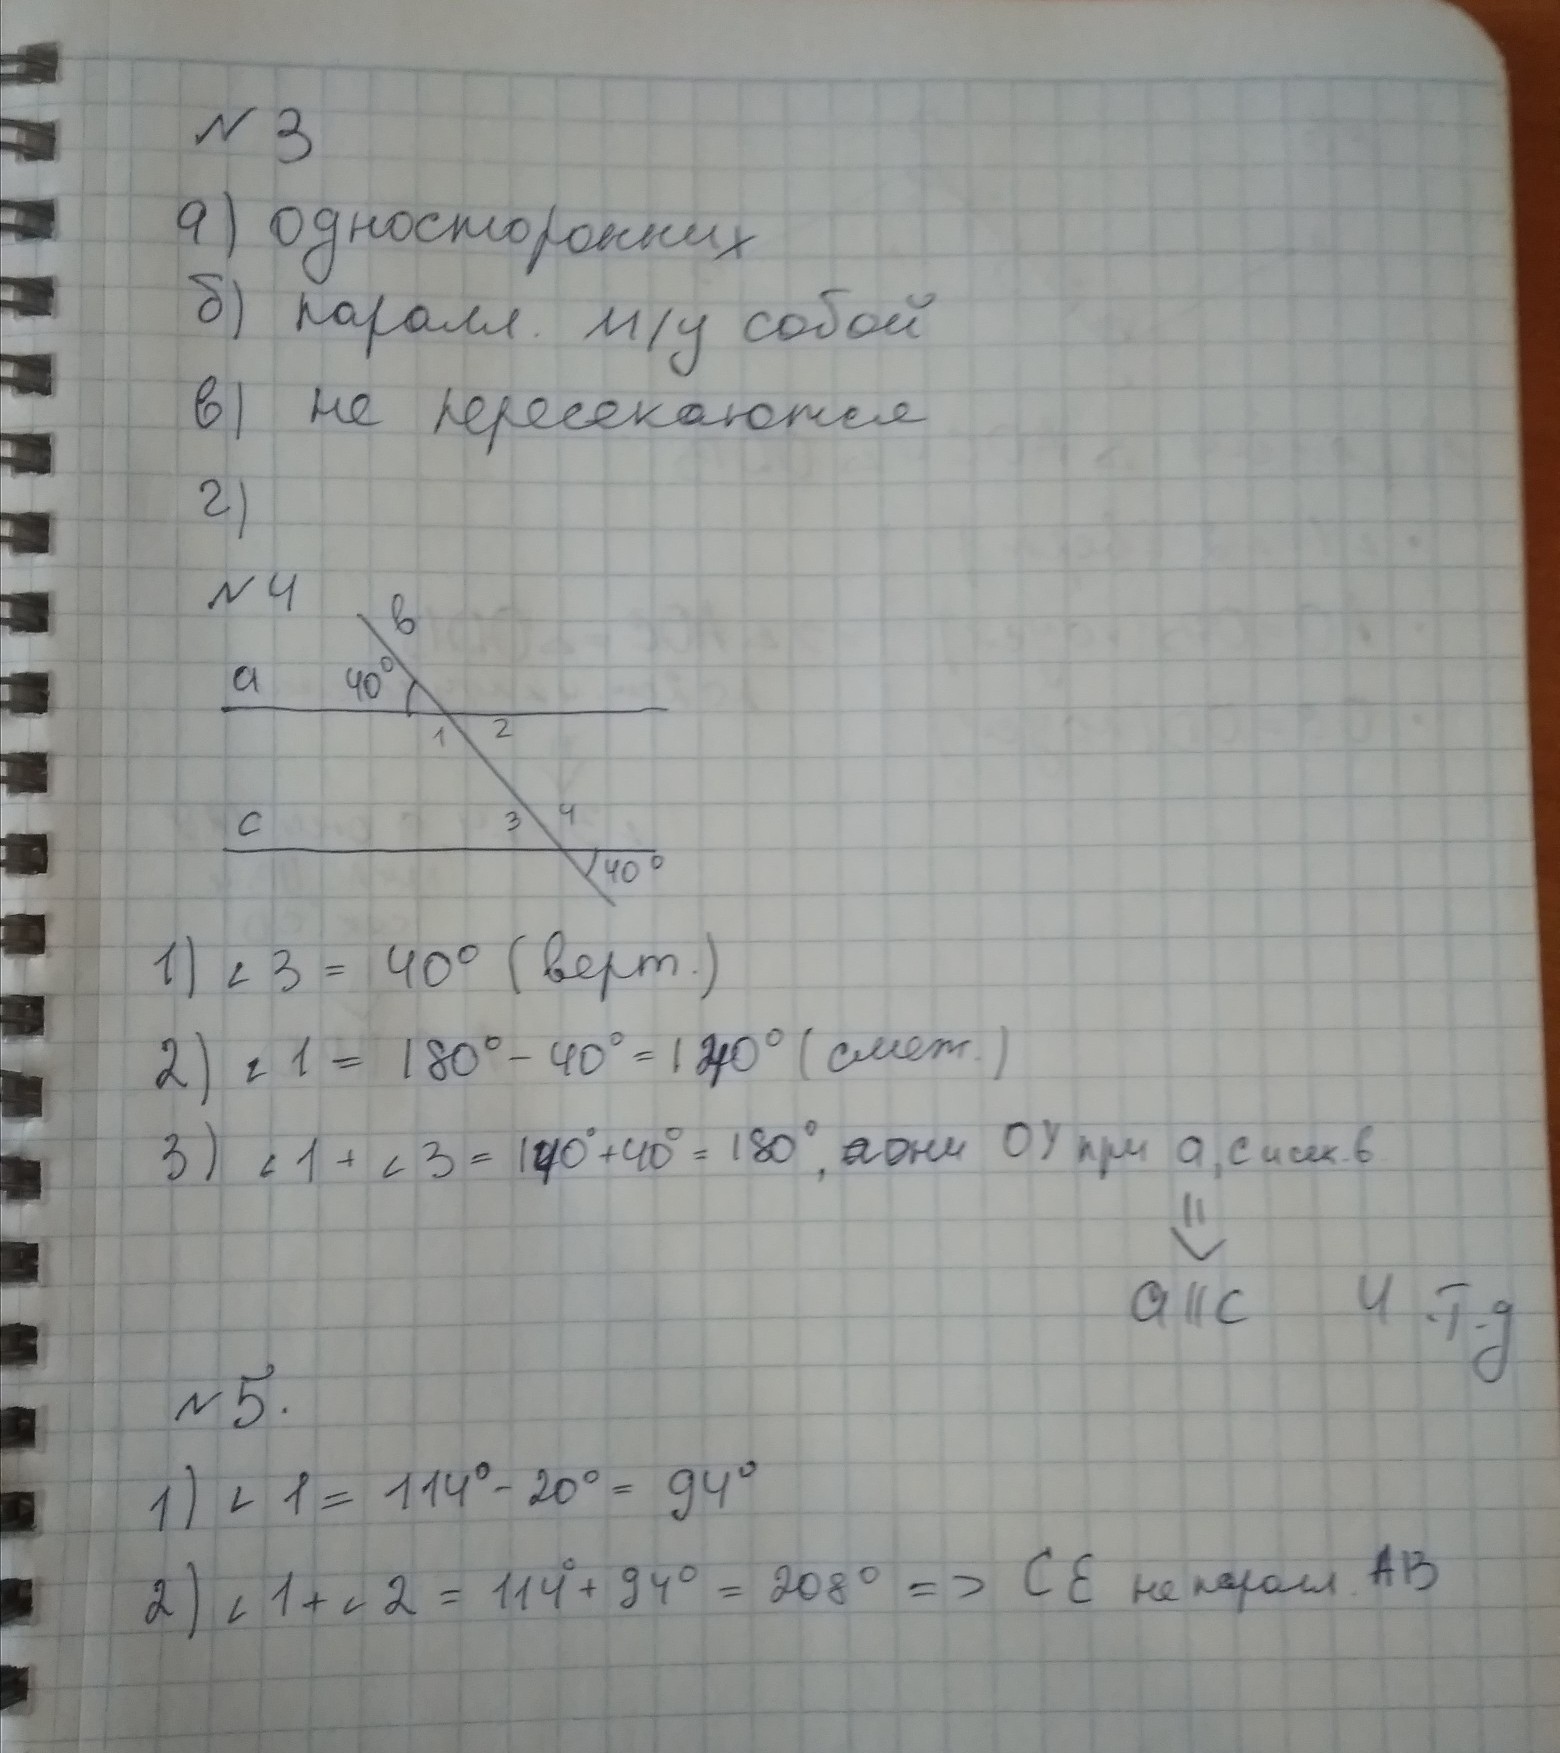 N 3
а) односторонних
б) паралл. м/у собой
в) не пересекаются
г)
N 4
в
a 40°
1 2
c 3 4
40°
1) ∠3 = 40° (верт.)
2) ∠1 = 180° - 40° = 140° (смеж.)
3) ∠1 + ∠3 = 140° + 40° = 180°, а они ОУ при a, c и сек. в
⇓
a || c ч.т.д
N 5.
1) ∠1 = 114° - 20° = 94°
2) ∠1 + ∠2 = 114° + 94° = 208° => CE не паралл. AB